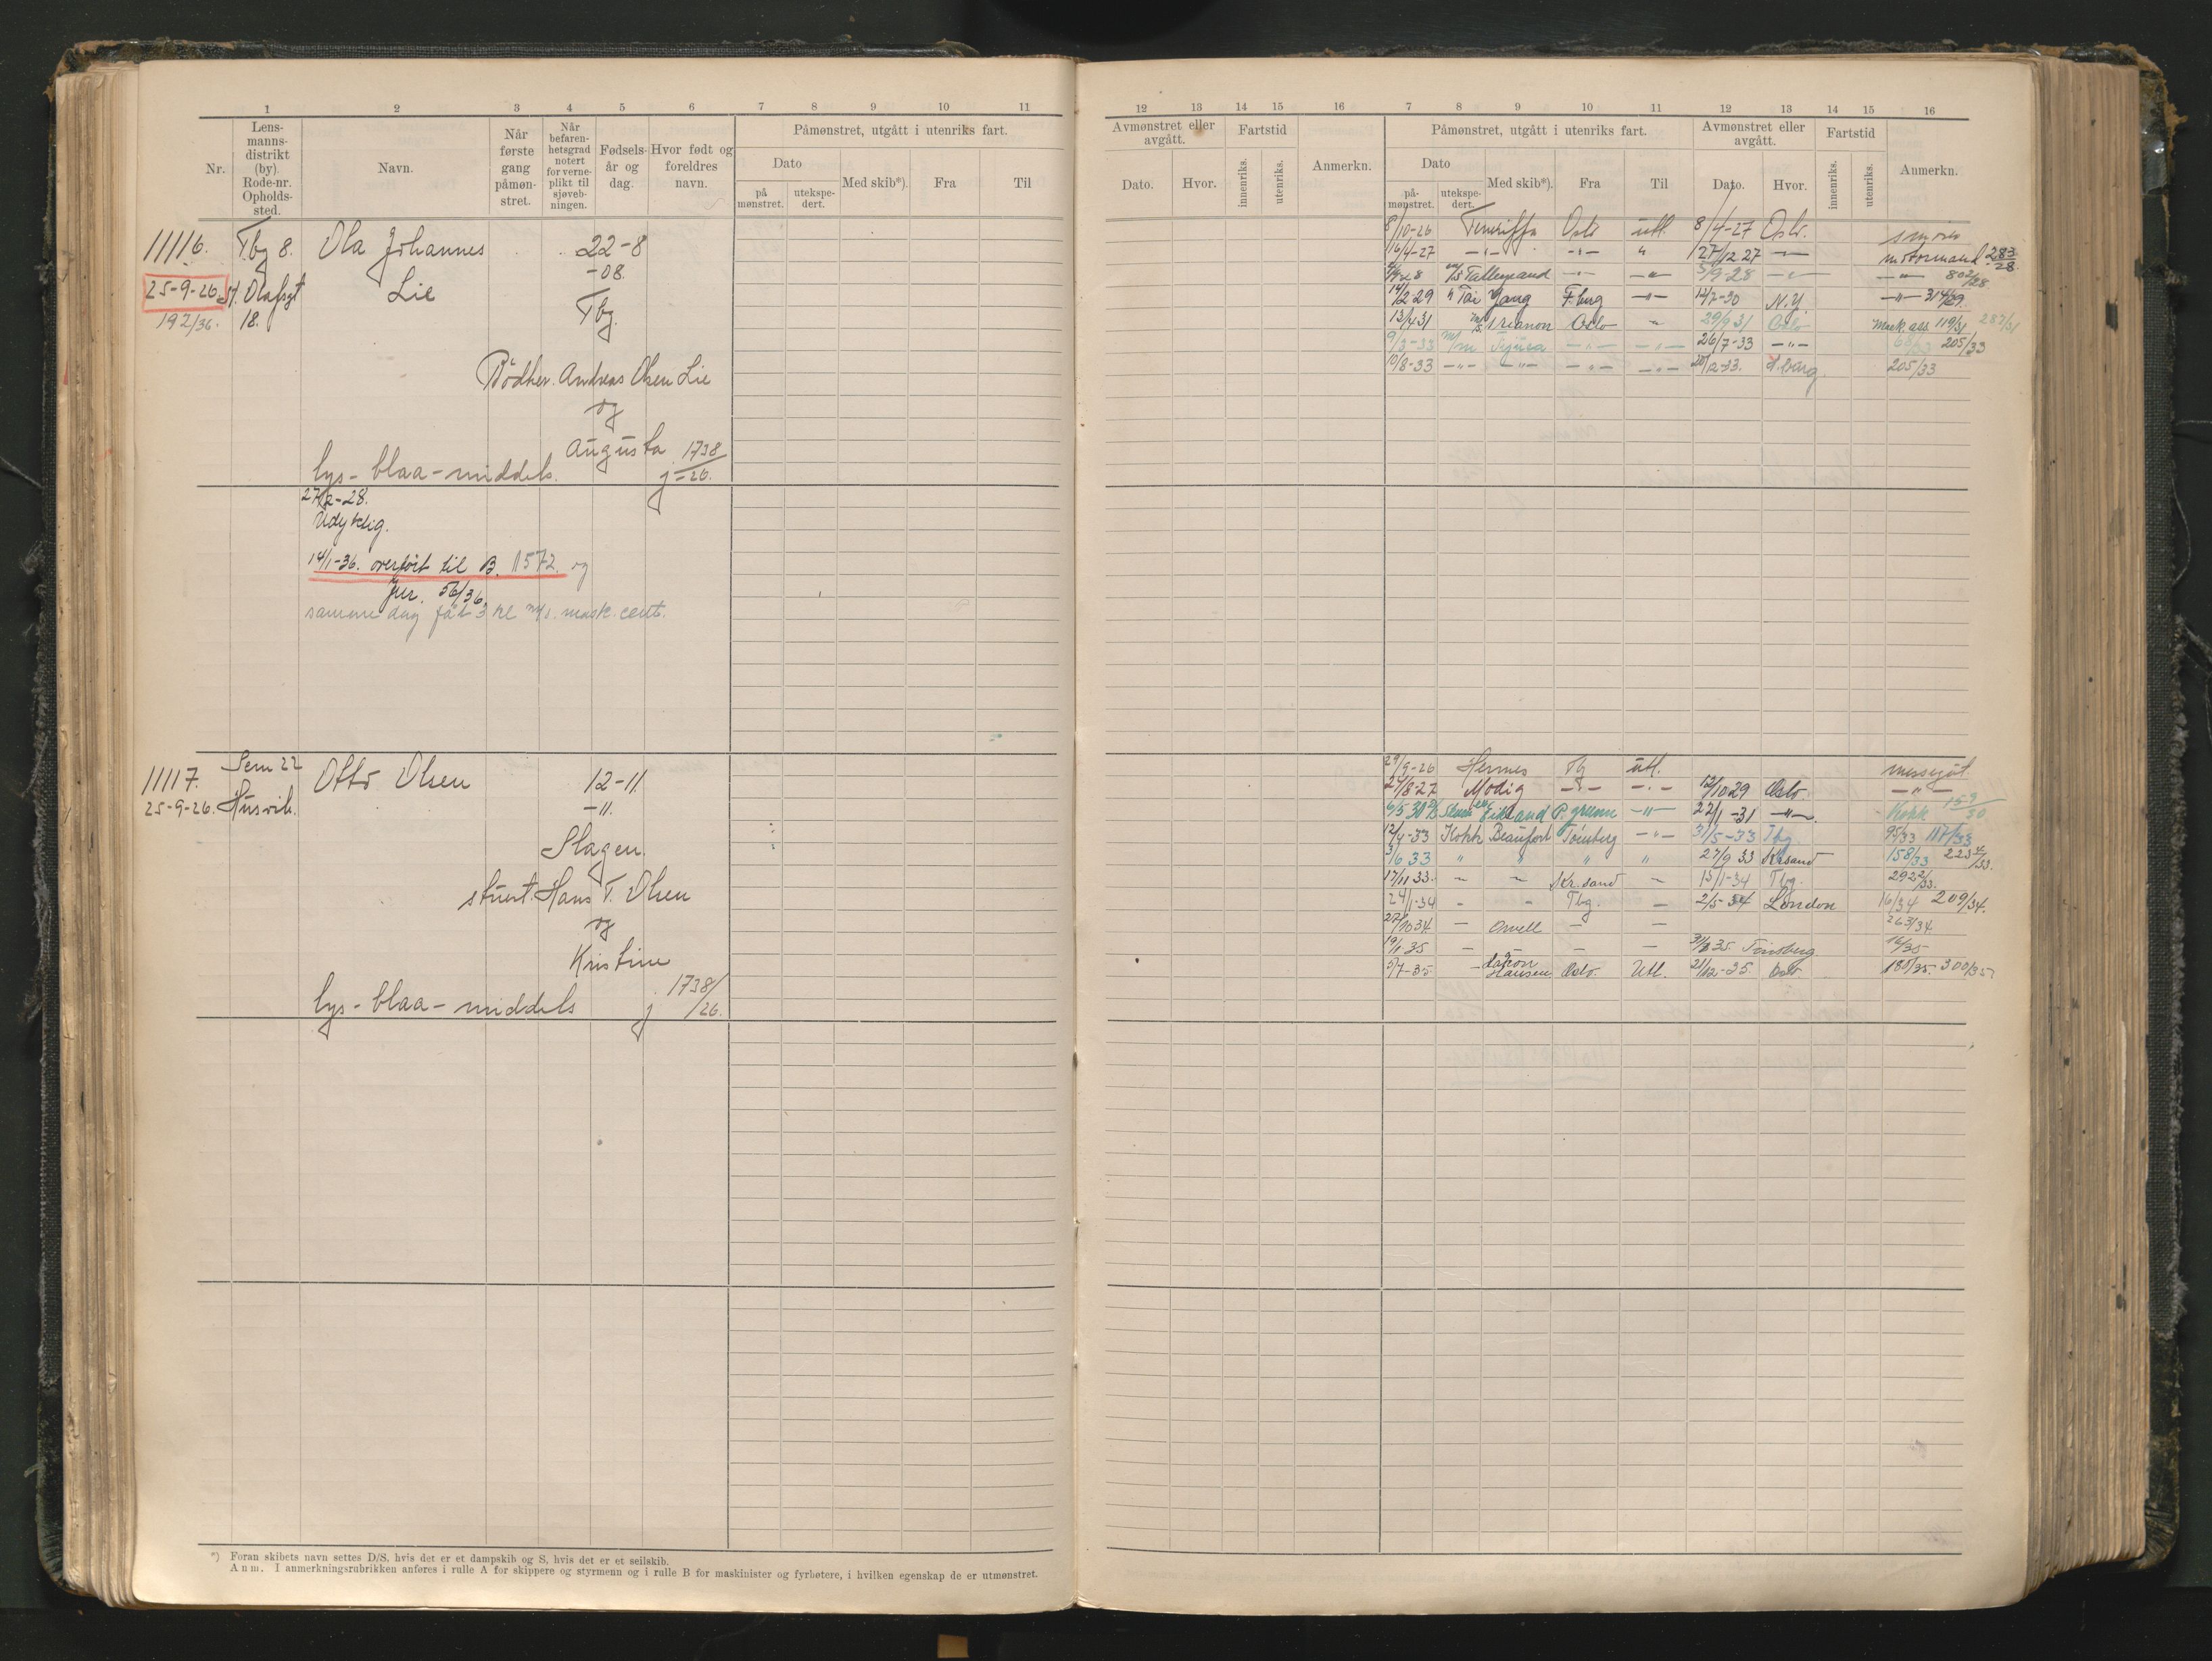 1 2 3 4 5 6 7 8 9 10 11
Nr.
Lens-
manns-
distrikt
(by)
Rode-nr.
Opholds-
sted.
Navn.
Når
første
gang
påmøn-
stret.
Når
befaren-
hetsgrad
notert
for verne-
plikt til
sjøveb-
ningen.
Fødsels-
år og
dag.
Hvor født og
foreldres
navn.
Påmønstret, utgått i utenriks fart.
Dato
på
mønstret.
utekspe-
dert.
Med skib*).
Fra
Til
11116. Tbg 8. Ola Johannes 22-8
25-9-26. St. Olafsgt Lie -08.
192/36. 18. Tbg.
Bødker. Andreas Olsen Lie
og
Augusta 1738
lys - blaa - middels. j -26.
27/2-28.
Udyktig.
14/1-36. overført til B. 1572. og
Jnr. 56/36.
samme dag fåt 3 kl m/s. mask. cert.
11117. Sem 22 Otto Olsen 12-11
25-9-26. Husvik. -11.
Slagen.
stuert. Hans T. Olsen
og
Kristine
lys - blaa - middels j 1738/26.
*) Foran skibets navn settes D/S, hvis det er et dampskib og S, hvis det er et seilskib.
Anm. I anmerkningsrubrikken anføres i rulle A for skippere og styrmenn og i rulle B for maskinister og fyrbøtere, i hvilken egenskap de er utmønstret.
12 13 14 15 16 7 8 9 10 11 12 13 14 15 16
Avmønstret eller
avgått.
Dato.
Hvor.
Fartstid
innenriks.
utenriks.
Anmerkn.
Påmønstret, utgått i utenriks fart.
Dato
på-
mønstret.
utekspe-
dert.
Med skib*).
Fra
Til
Avmønstret eller
avgått.
Dato.
Hvor.
Fartstid
innenriks.
utenriks.
Anmerkn.
8/10-26 Teneriffa Oslo utl. 8/4-27 Oslo. smører
16/4-27 -"- -"- " 27/12 27 -"- motormand 283/28.
m/s Talleyrand -"- -"- 5/9-28 -"- -"- 802/28
14/2 29 " Tai Yang F.berg -"- 12/7-30 N.Y. -"- 314/29.
13/4 31 m/s Trianon Oslo - 29/9 31 Oslo Mask ass 119/31, 287/31
9/3-33 m/m Tijuca -"- -"- 26/7-33 -"- 68/33 205/33
10/8-33 -"- -"- -"- -"- 20/12-33. 205/33
29/9-26 Hermes Tbg utl. messegut.
27/8-27 Modig -"- -"- 12/10 29 Oslo. -"-
6/5 30 Eikland P.grunn -"- 22/1-31 -"- Kokk 159/30
12/4-33 Kokk Beaufort Tønsberg -"- 31/5-33 Tbg. 95/33 117/33
3/6 33 " " " " 27/9 33 Kr.sand 158/33 2234/33.
17/11 33. - - Kr.sand - 15/1-34 Tbg. 2922/33.
24/1-34 - - Tbg. - 2/5-34 London 16/34 209/34.
27/10 34. - Orwell - - 263/34.
19/1-35 - - - - 35. Tønsberg 16/35
5/7-35 - Hansen Oslo. Utl. 21/12-35. Oslo 180/35. 300/35